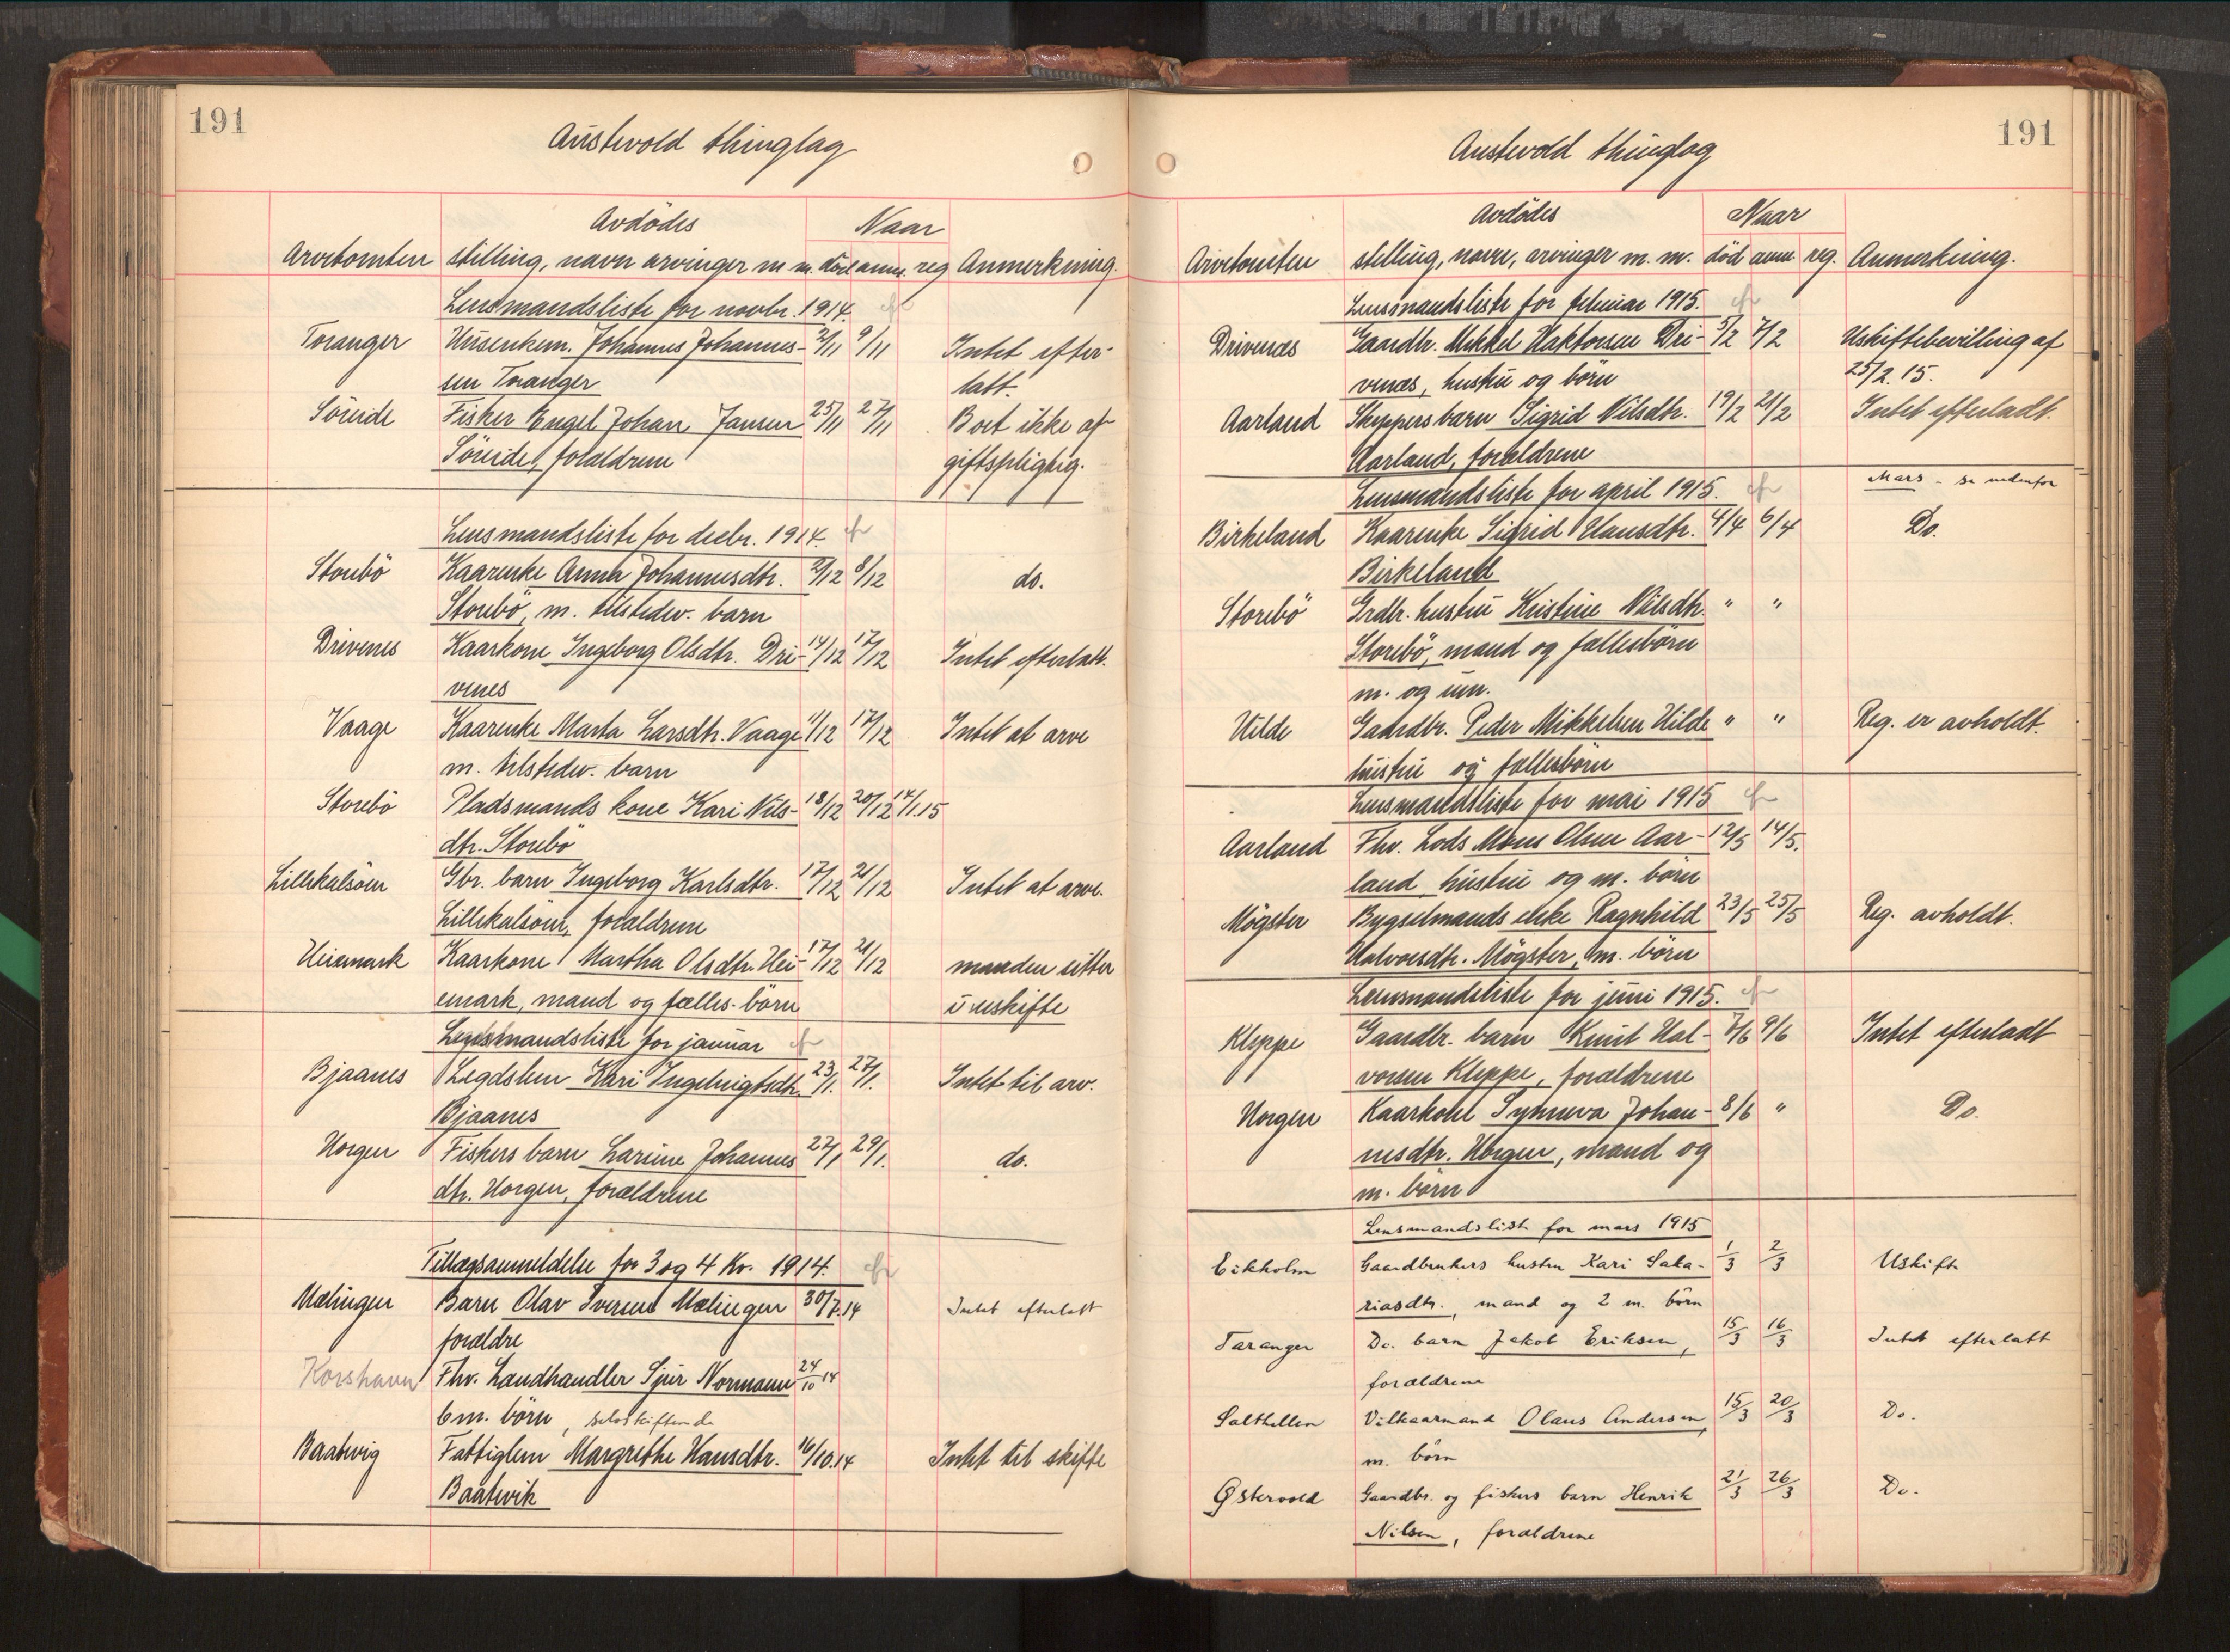 191
Austevold thinglag
Avdödes Naar
Arvetomten stilling, navn arvinger m m. död anm. reg Anmerkning.
Lensmandsliste for novbr. 1914.
Toranger Husenkem. Johannes Johannes- 2/11 9/11 Intet efter-
sen Toranger latt.
Söreide Fisker Engel Johan Jansen 25/11 27/11 Boet ikke af
Söreide, foraldrene giftspligtig.
Lensmandsliste for decbr. 1914.
Storebö Kaarenke Anna Johannesdtr. 2/12 8/12 do.
Storebö, m. tilstedev. barn
Drivenes Kaarkone Ingeborg Olsdtr. Dri- 14/12 17/12 Intet efterlatt.
venes
Vaage Kaarenke Marta Larsdtr. Vaage 11/12 17/12 Intet at arve
m. tilstedev. barn
Storebö Pladsmands kone Kari Nils- 18/12 20/12 14/1.15
dtr. Storebö
Lillekalsöen Gbr. barn Ingeborg Karlsdtr. 17/12 21/12 Intet at arve.
Lillekalsöen, foraldrene
Heiemark Kaarkone Martha Olsdtr. Hei- 17/12 21/12 manden sitter
emark, mand og fælles-börn i uskifte
Lensmandsliste for januar
Bjaanes Legdslem Kari Ingebrigtsdtr. 23/1. 27/1. Intet til arv.
Bjaanes
Horgen Fiskers barn Larine Johannes 27/1 29/1. do.
dtr. Horgen, foraldrene
Tillægsanmeldelse for 3 og 4 Kv. 1914.
Mælingen Barn Olav Iversen Mælingen 30/7.14 Intet efterlatt
forældre
Korshavn Fhv. Landhandler Sjur Normann 24/10 14
6 m. börn, selvskiftende
Baatevig Fattiglem Margrethe Hansdtr. 16/10.14 Intet til skifte
Baatevik
191
Austevold thinglag
Avdödes Naar
Arvetomten stilling, navn, arvinger m. m. död anm. reg. Anmerkning.
Lensmandsliste for februar 1915.
Drivenæs Gaardbr. Mikkel Haktorsen Dri- 5/2 7/2 Uskiftebevilling af
venæs, hustru og börn 25/2. 15.
Aarland Skyppers barn Sigrid Nilsdtr. 19/2 21/2 Intet efterladt.
Aarland, foraldrene
Mars - se nedenfor
Lensmandsliste for april 1915.
Birkeland Kaarenke Sigrid Hansdtr. 4/4 6/4 Do.
Birkeland
Storebö Grdbr. hustru Kristine Nilsdtr. " "
Storebö, mand og fællesbörn
m. og um.
Hilde Gaardbr. Peder Mikkelsen Hilde " " Reg. er avholdt.
hustru og fællesbörn
Lensmandsliste for mai 1915
Aarland Fhv. Lods Mons Olsen Aar- 12/5 14/5.
land hustru og m. börn
Mögster Bygselmands enke Ragnhild 23/5 25/5 Reg. avholdt.
Halvorsdtr. Mögster, m. börn
Lensmandsliste for juni 1915.
Kleppe Gaardbr. barn Knut Hal- 7/6 9/6 Intet efterladt
vorsen Kleppe, foraldrene
Horgen Kaarkone Synneva Johan- 8/6 " Do.
nesdtr. Horgen, mand og
m. börn
Lensmandsliste for mars 1915
Eikholm Gaardbrukers hustru Kari Saka- 1/3 2/3 Uskifte
riasdtr., mand og 2 m. börn
Taranger Do. barn Jakob Eriksen, 15/3 16/3 Intet efterlatt
forældrene
Salthellen Vilkaarmand Olaus Andersen, 15/3 20/3 Do.
m. börn
Østervold Gaardbr. og fiskers barn Henrik 21/3 26/3 Do.
Nilsen, forældrene